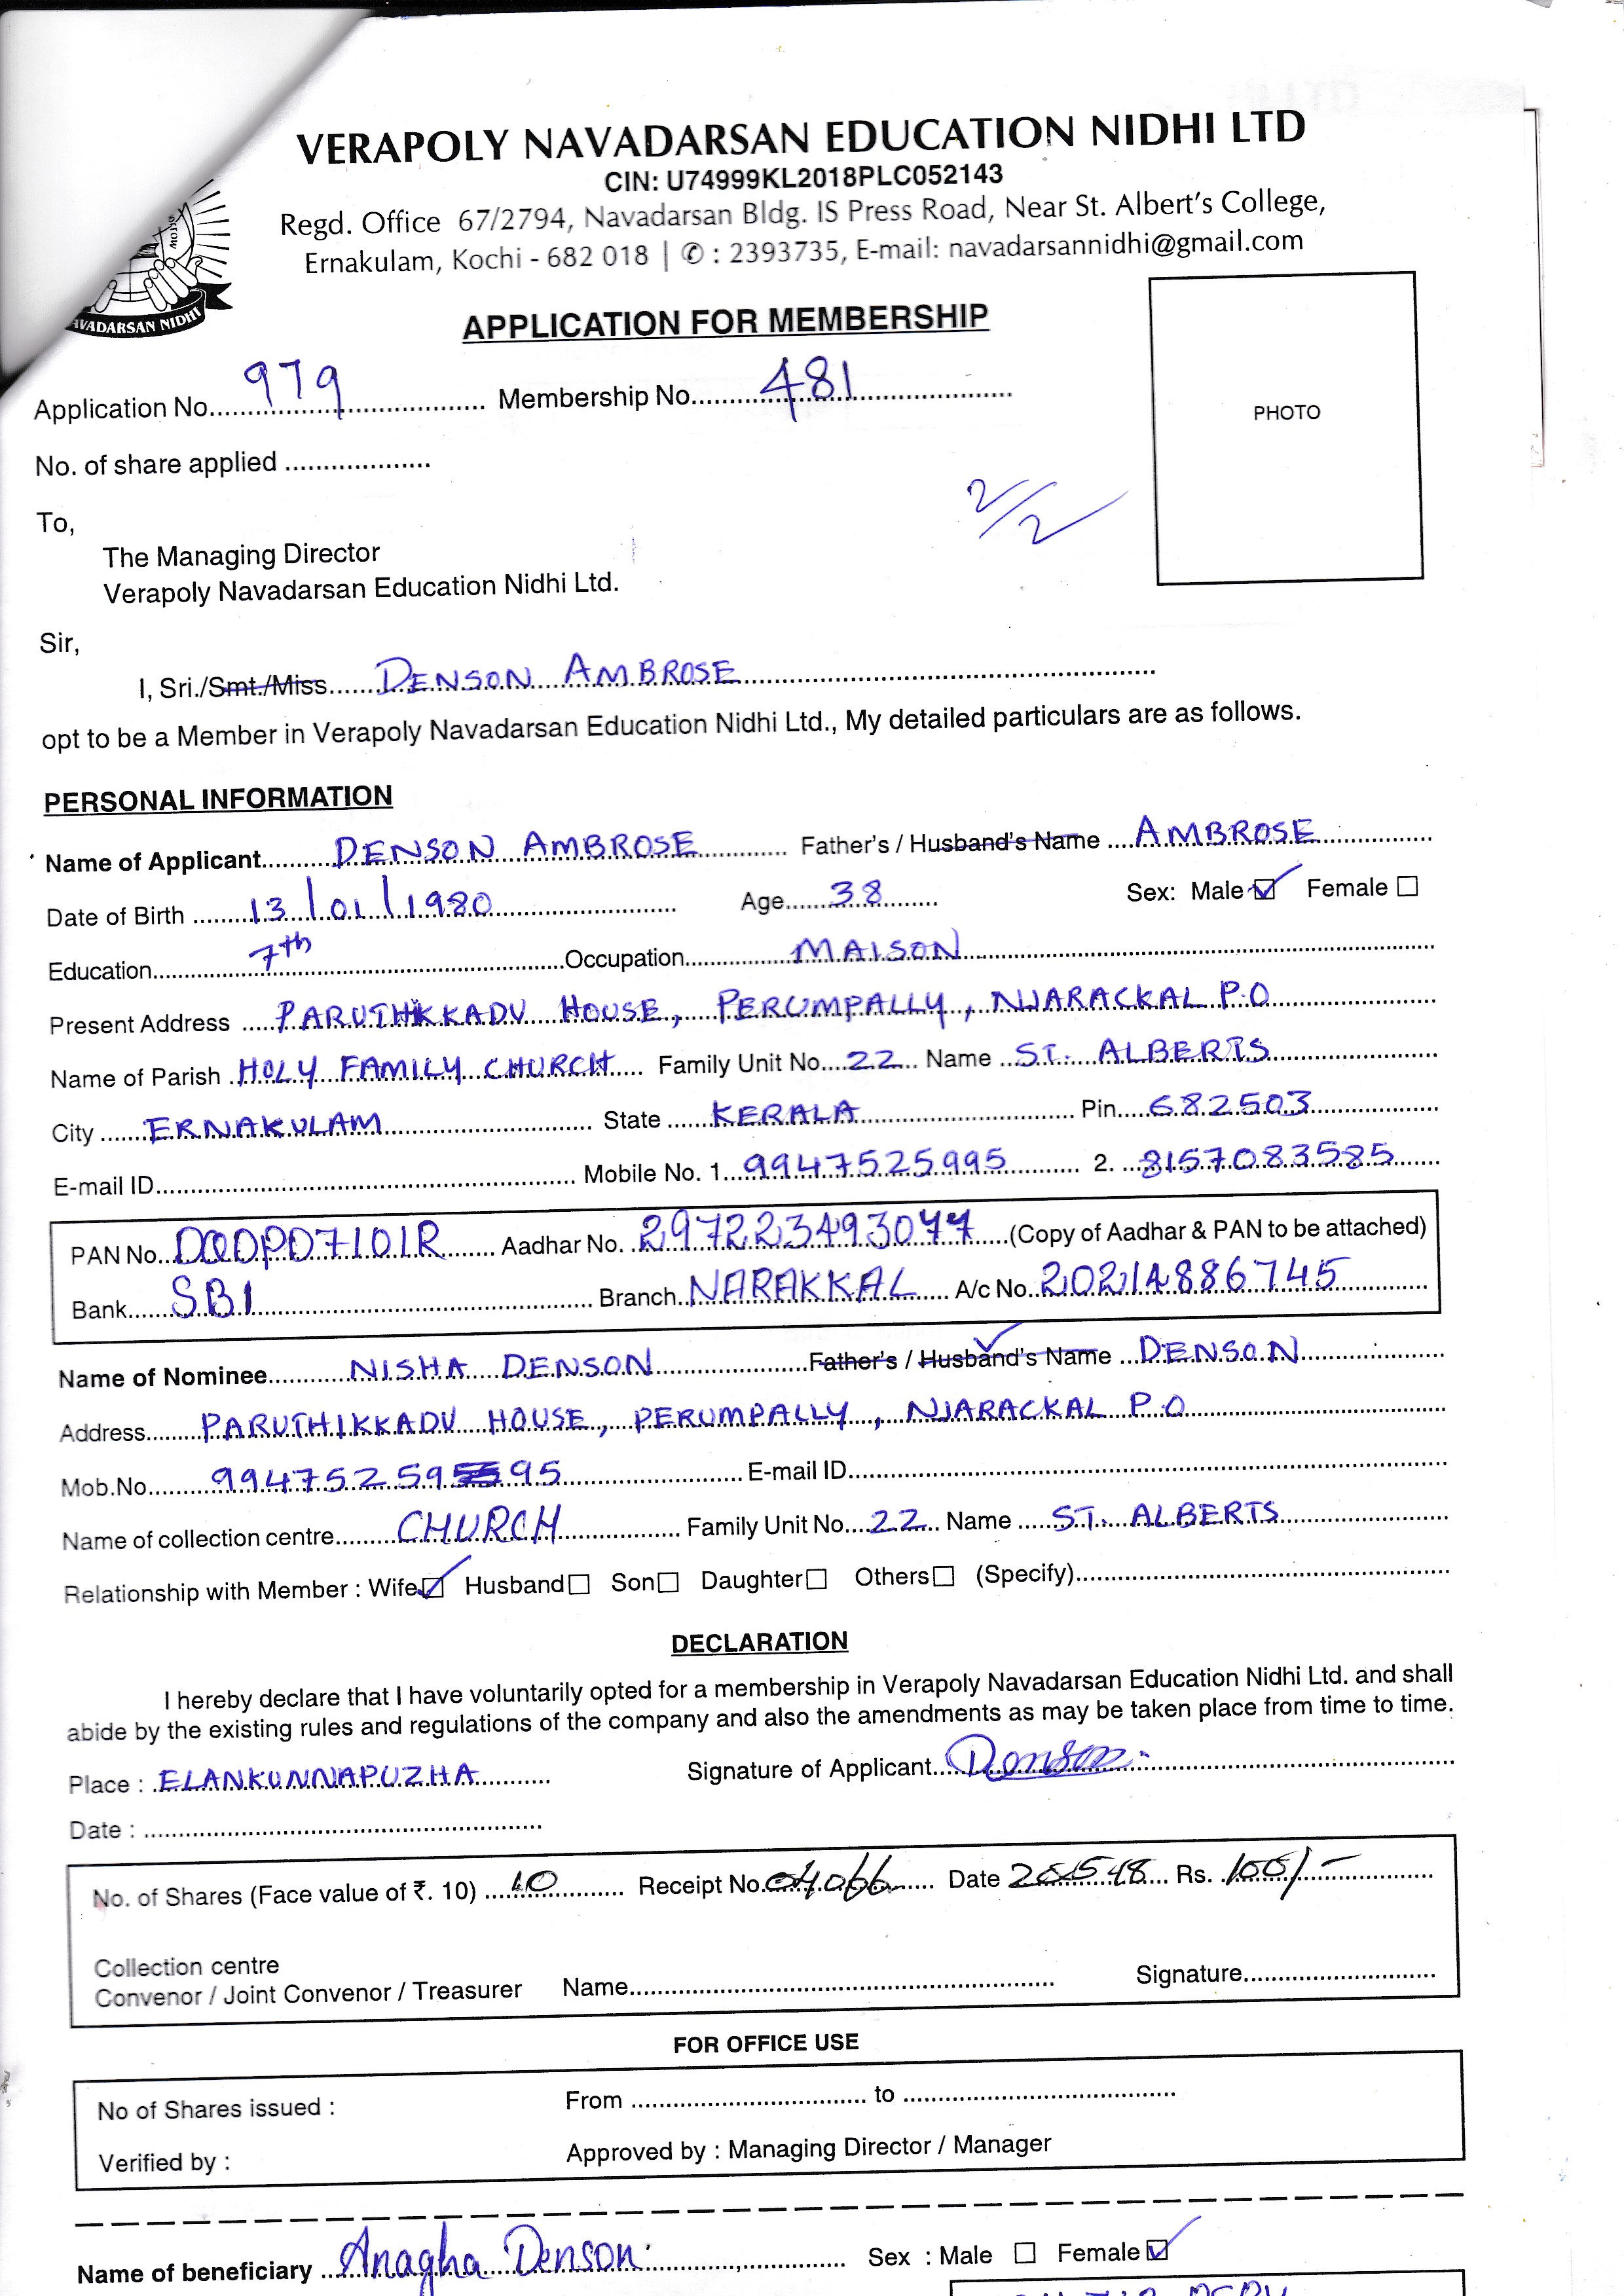 VERAPOLY NAVADARSAN EDUCATION NIDHI LTD
CIN: U74999KL2018PLC052143
Regd. Office 67/2794, Navadarsan Bldg. IS Press Road, Near St. Albert's College,
Ernakulam, Kochi - 682 018 | ✆ : 2393735, E-mail: navadarsannidhi@gmail.com
AVADARSAN NIDHI
APPLICATION FOR MEMBERSHIP
Application No. 979 Membership No. 481
PHOTO
No. of share applied
2/2
To,
The Managing Director
Verapoly Navadarsan Education Nidhi Ltd.
Sir,
I, Sri./Smt./Miss DENSON AMBROSE
opt to be a Member in Verapoly Navadarsan Education Nidhi Ltd., My detailed particulars are as follows.
PERSONAL INFORMATION
Name of Applicant DENSON AMBROSE Father's / Husband's Name AMBROSE
Date of Birth 13/01/1980 Age 38 Sex: Male ☑ Female ☐
Education 7th Occupation MAISON
Present Address PARUTHIKKADU HOUSE, PERUMPALLY, NJARACKAL P.O
Name of Parish HOLY FAMILY CHURCH Family Unit No. 22 Name ST. ALBERTS
City ERNAKULAM State KERALA Pin 682503
E-mail ID Mobile No. 1. 9947525995 2. 8157083585
PAN No. DQDPD7101R Aadhar No. 297223493044 (Copy of Aadhar & PAN to be attached)
Bank SBI Branch NARAKKAL A/c No. 20214886745
Name of Nominee NISHA DENSON Father's / Husband's Name DENSON
Address PARUTHIKKADU HOUSE, PERUMPALLY, NJARACKAL P.O
Mob.No. 99475259 95 E-mail ID
Name of collection centre CHURCH Family Unit No. 22 Name ST. ALBERTS
Relationship with Member : Wife ☑ Husband ☐ Son ☐ Daughter ☐ Others ☐ (Specify)
DECLARATION
I hereby declare that I have voluntarily opted for a membership in Verapoly Navadarsan Education Nidhi Ltd. and shall
abide by the existing rules and regulations of the company and also the amendments as may be taken place from time to time.
Place : ELANKUNNAPUZHA Signature of Applicant Denson
Date :
No. of Shares (Face value of ₹. 10) 10 Receipt No. 04066 Date Rs. 100/-
Collection centre
Convenor / Joint Convenor / Treasurer Name Signature
FOR OFFICE USE
No of Shares issued : From to
Verified by : Approved by : Managing Director / Manager
Name of beneficiary Anagha Denson Sex : Male ☐ Female ☑